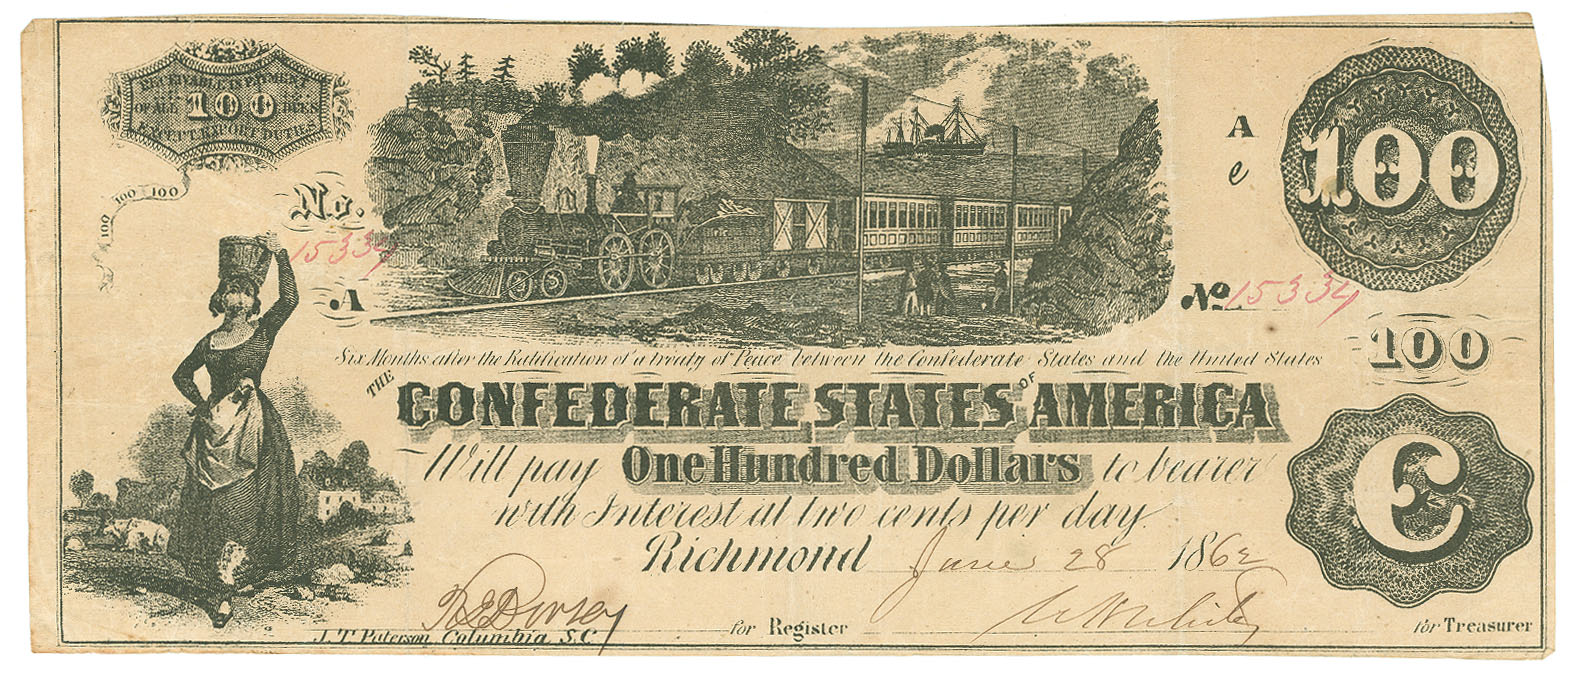 RECEIVABLE IN PAYMENT
OF ALL 100 DUES
EXCEPT EXPORT DUTIES
100 100 100
No.
15334
A
A
e
100
No 15334
100
Six Months after the Ratification of a treaty of Peace between the Confederate States and the United States
THE CONFEDERATE STATES OF AMERICA
Will pay One Hundred Dollars to bearer
with Interest at two cents per day.
Richmond June 28 1862
C
for Register
for Treasurer
J. T. Paterson, Columbia, S.C.